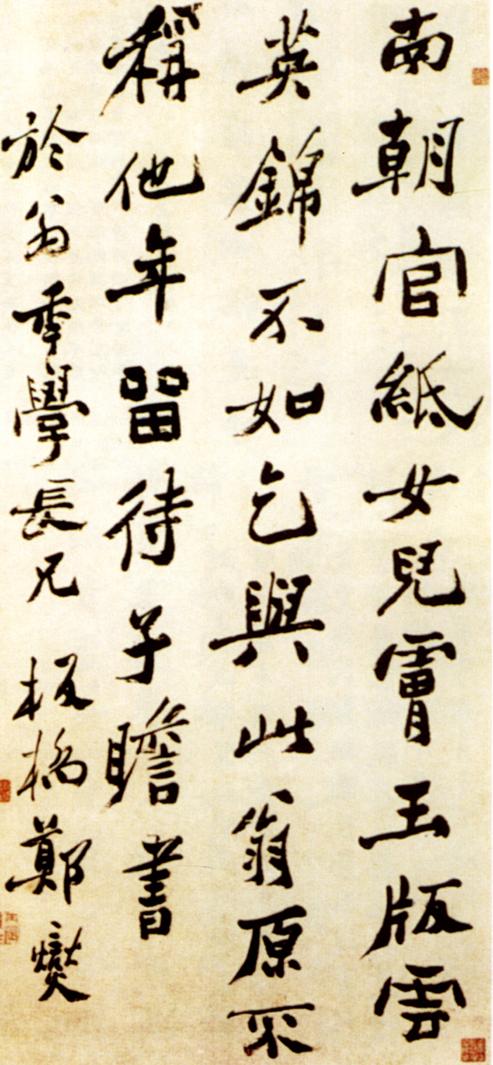 南朝官紙女兒膚玉版雲
英錦不如乞與此翁原不
稱他年留待子瞻書
於翁年學長兄 板橋鄭燮